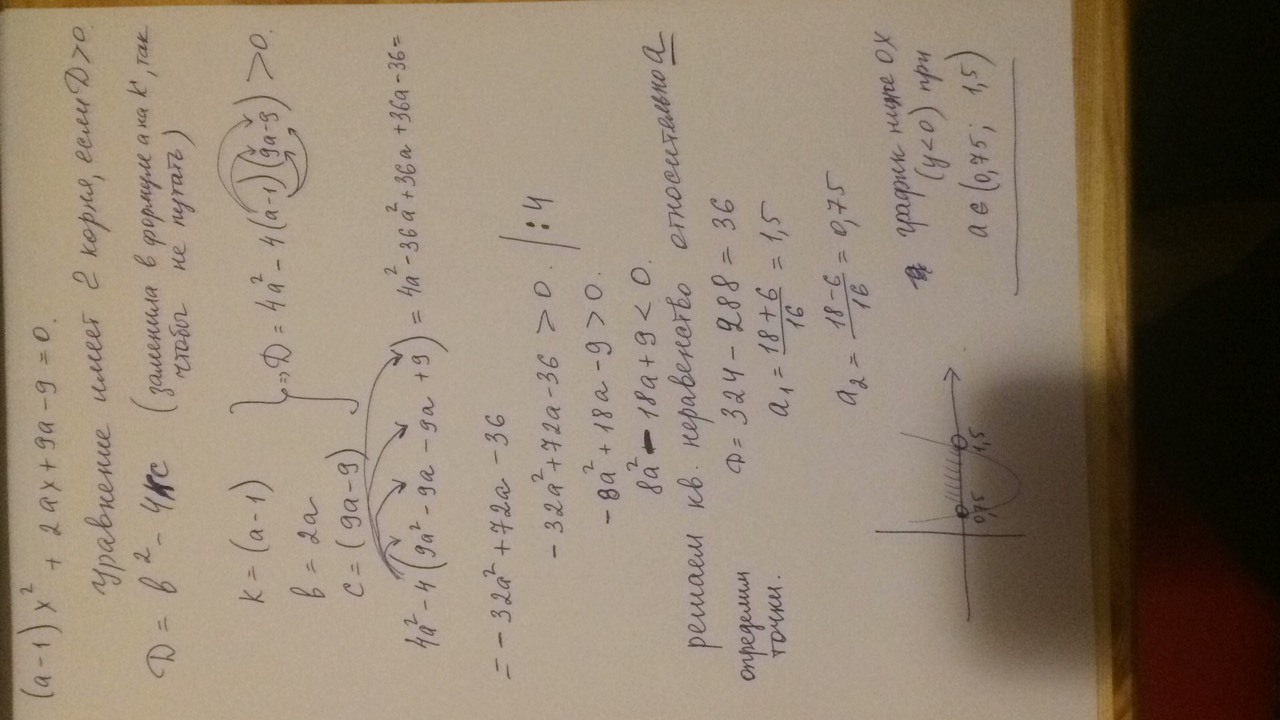 (a-1)x² + 2ax + 9a - 9 = 0.
Уравнение имеет 2 корня, если D > 0.
D = b² - 4kc (заменила в формуле a на k, так
чтобы не путать)
k = (a-1)
b = 2a
c = (9a-9)
=> D = 4a² - 4(a-1)(9a-9) > 0.
4a² - 4(9a² - 9a - 9a + 9) = 4a² - 36a² + 36a + 36a - 36 =
= -32a² + 72a - 36
-32a² + 72a - 36 > 0. | : 4
-8a² + 18a - 9 > 0.
8a² - 18a + 9 < 0.
решаем кв. неравенство относительно a
определим
точки.
D = 324 - 288 = 36
a₁ = (18+6)/16 = 1,5
a₂ = (18-6)/16 = 0,75
0,75 1,5
график ниже OX
(y<0) при
a ∈ (0,75; 1,5)